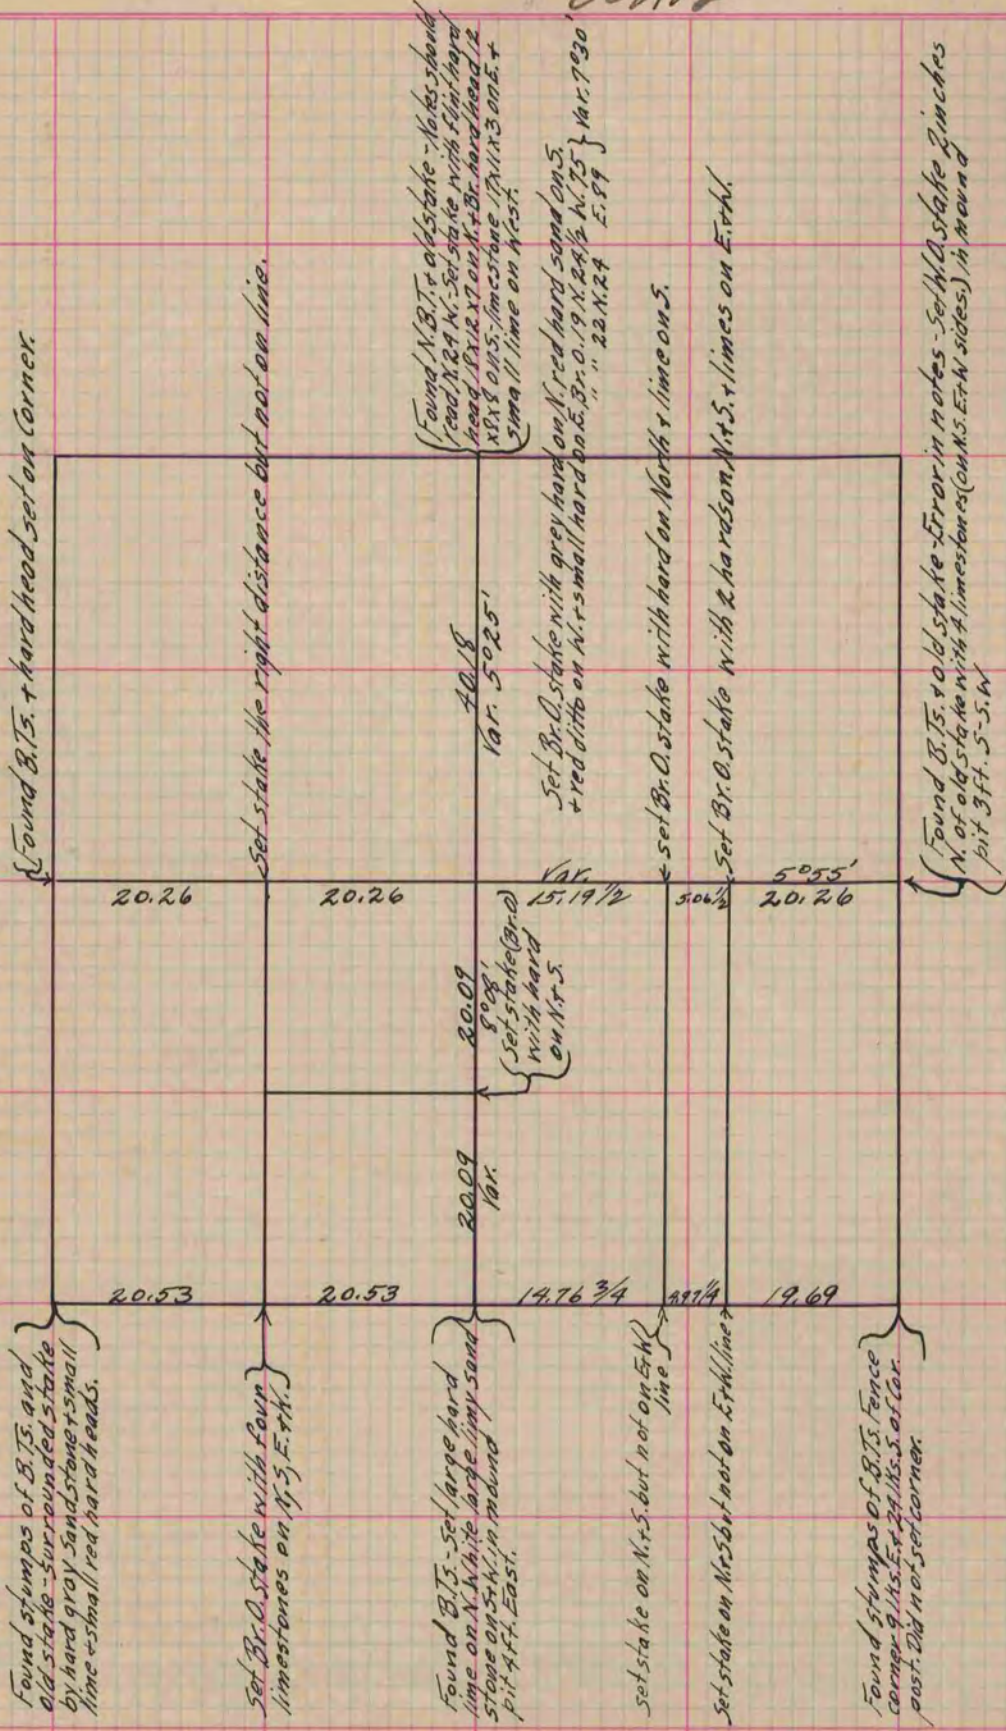 {Found B.Ts. + hard head set on Corner.
{Found N.B.T. + old stake - Notes should
read N.24 W. - Set stake with flint hard
head 18x12x7 on N. + Br. hard head 12
x8x8 on S. - limestone 17x11x3 on E. +
small lime on West.
Set stake the right distance but not on line.
Set Br.O. stake with grey hard on N. red hard sand on S.
+ red ditto on W. + small hard on E. Br.O. 19 N. 24 1/2 W. 75 } Var. 7°30'
" " 22 N. 24 E. 89
set Br.O. stake with hard on North + lime on S.
Set Br.O. stake with 2 hards on N.+S. + limes on E.+W.
Found B.Ts. + old stake - Error in notes - Set W.O. stake 2 inches
N. of old stake with 4 limestones (on N.S.E.+W sides.) in mound
pit 3 ft. S-S.W
40.18
Var. 5°25'
20.26
20.26
Var.
15.19 1/2
5.06 1/2
5°55'
20.26
20.09
8°08'
{Set stake (Br.O)
with hard
on N.+S.
20.09
Var.
20.53
20.53
14.76 3/4
4.92 1/4
19.69
Found stumps of B.Ts. and
old stake - surrounded stake
by hard gray Sandstone + small
lime + small red hard heads.
Set Br.O. stake with four
limestones on N,S,E.+W.
Found B.Ts. - Set large hard
lime on N. White large limy sand
stone on S+W. in mound
pit 4 ft. East.
set stake on N.+S. but not on E+W
line
Set stake on N+S but not on E+W. line
Found stumps of B.Ts. Fence
corner 9 lks. E. + 24 lks. S. of Cor.
post. Did not set corner.